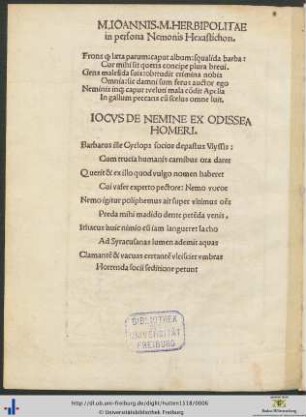 M.IOANNIS.M.HERBIPOLITAE
in persona Nemonis Hexastichon.
Frons ꝙ læta parum: caput album: squalida barba:
Cur mihi sit quæris concipe plura breui.
Gens malesida suis: obtrudit crimina nobis
Omnia: sic damni sum ferus auctor ego
Neminis inꝙ caput: veluti mala cōdit Apella
In gallum peccans cū scelus omne luit.
IOCVS DE NEMINE EX ODISSEA
HOMERI.
Barbarus ille Cyclops socios depastus Vlyssis:
Cum trucia humanis carnibus ora daret
Querit & ex illo quod vulgo nomen haberet
Cui vafer experto pectore: Nemo vocor
Nemo igitur poliphemus ait super vltimus oēs
Preda mihi madido dente petēda venis,
Ithacus huic nimio cū iam langueret Iacho
Ad Syracusanas lumen ademit aquas
Clamantē & vacuas errantē vlciscier vmbras
Horrenda socii seditione petunt
BIBLIOTHEK
UNIVERSITÄT
FREIBURG
http://dl.ub.uni-freiburg.de/diglit/hutten1518/0006
© Universitätsbibliothek Freiburg
Baden-Württemberg